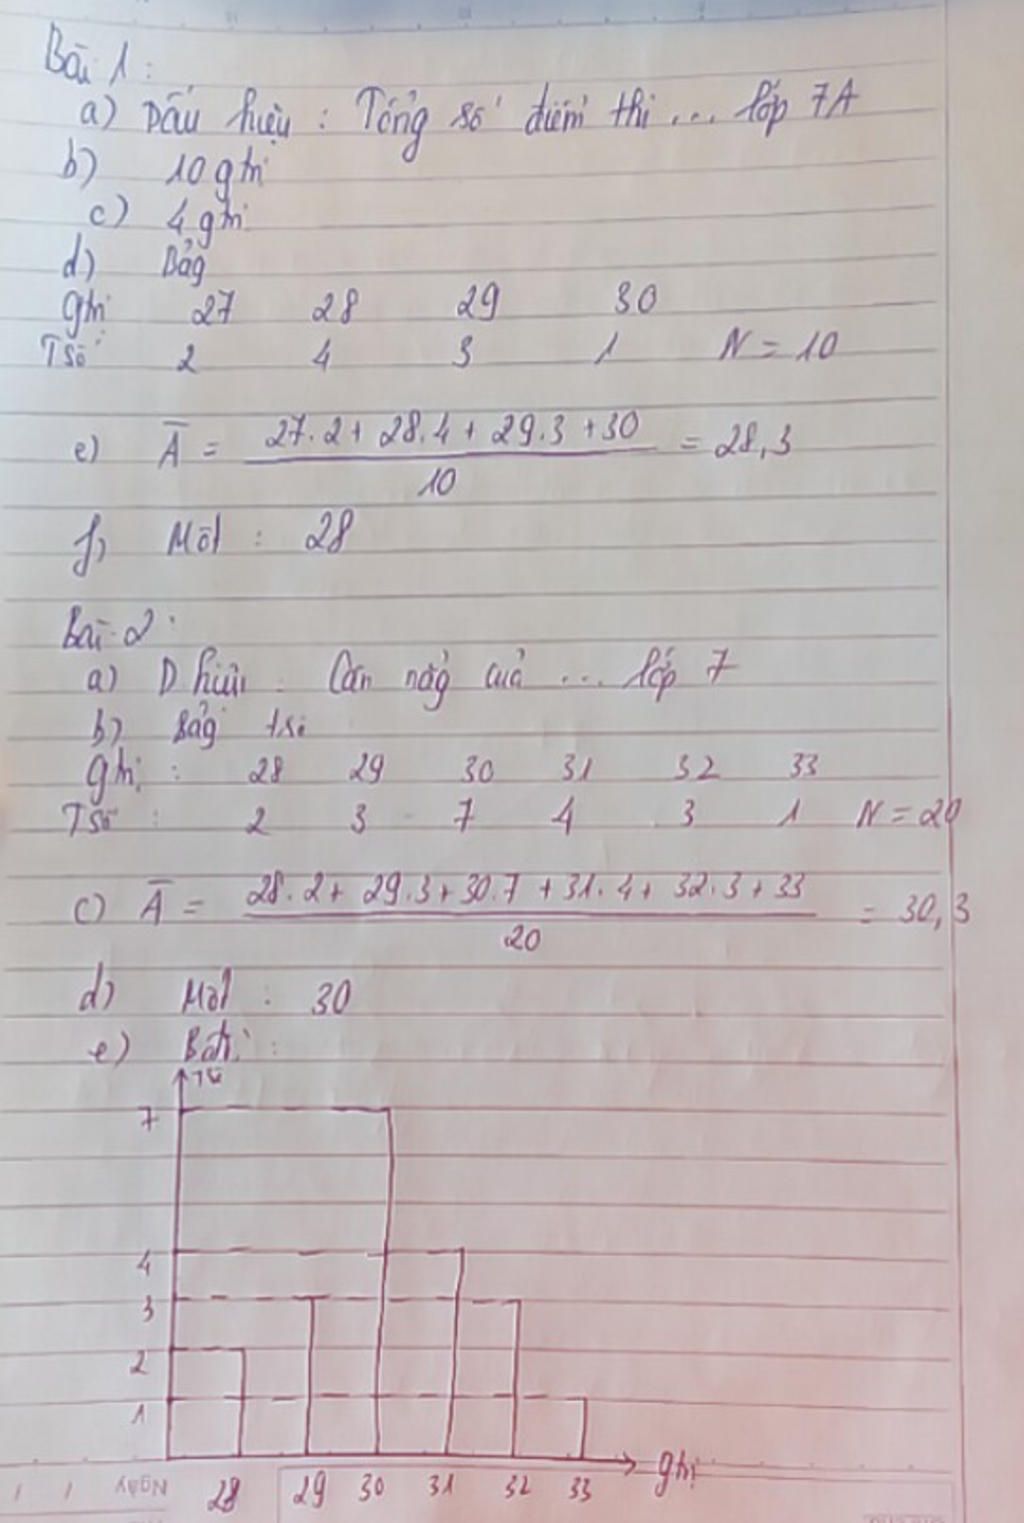 Bài 1:
a) Dấu hiệu : Tổng số điểm thi ... lớp 7A
b) 10 gtri
c) 4 gtri
d) Bảg
gtri 27 28 29 30
Tsố 2 4 3 1 N = 10
e) A̅ = (27.2 + 28.4 + 29.3 + 30) / 10 = 28,3
f) Mốt : 28
Bài 2:
a) D hiệu : Cân nặg của ... lớp 7
b) Bảg tsố
gtri : 28 29 30 31 32 33
Tsố : 2 3 7 4 3 1 N = 20
c) A̅ = (28.2 + 29.3 + 30.7 + 31.4 + 32.3 + 33) / 20 = 30,3
d) Mốt : 30
e)
7
4
3
2
1
28 29 30 31 32 33 gtrị
Ngày